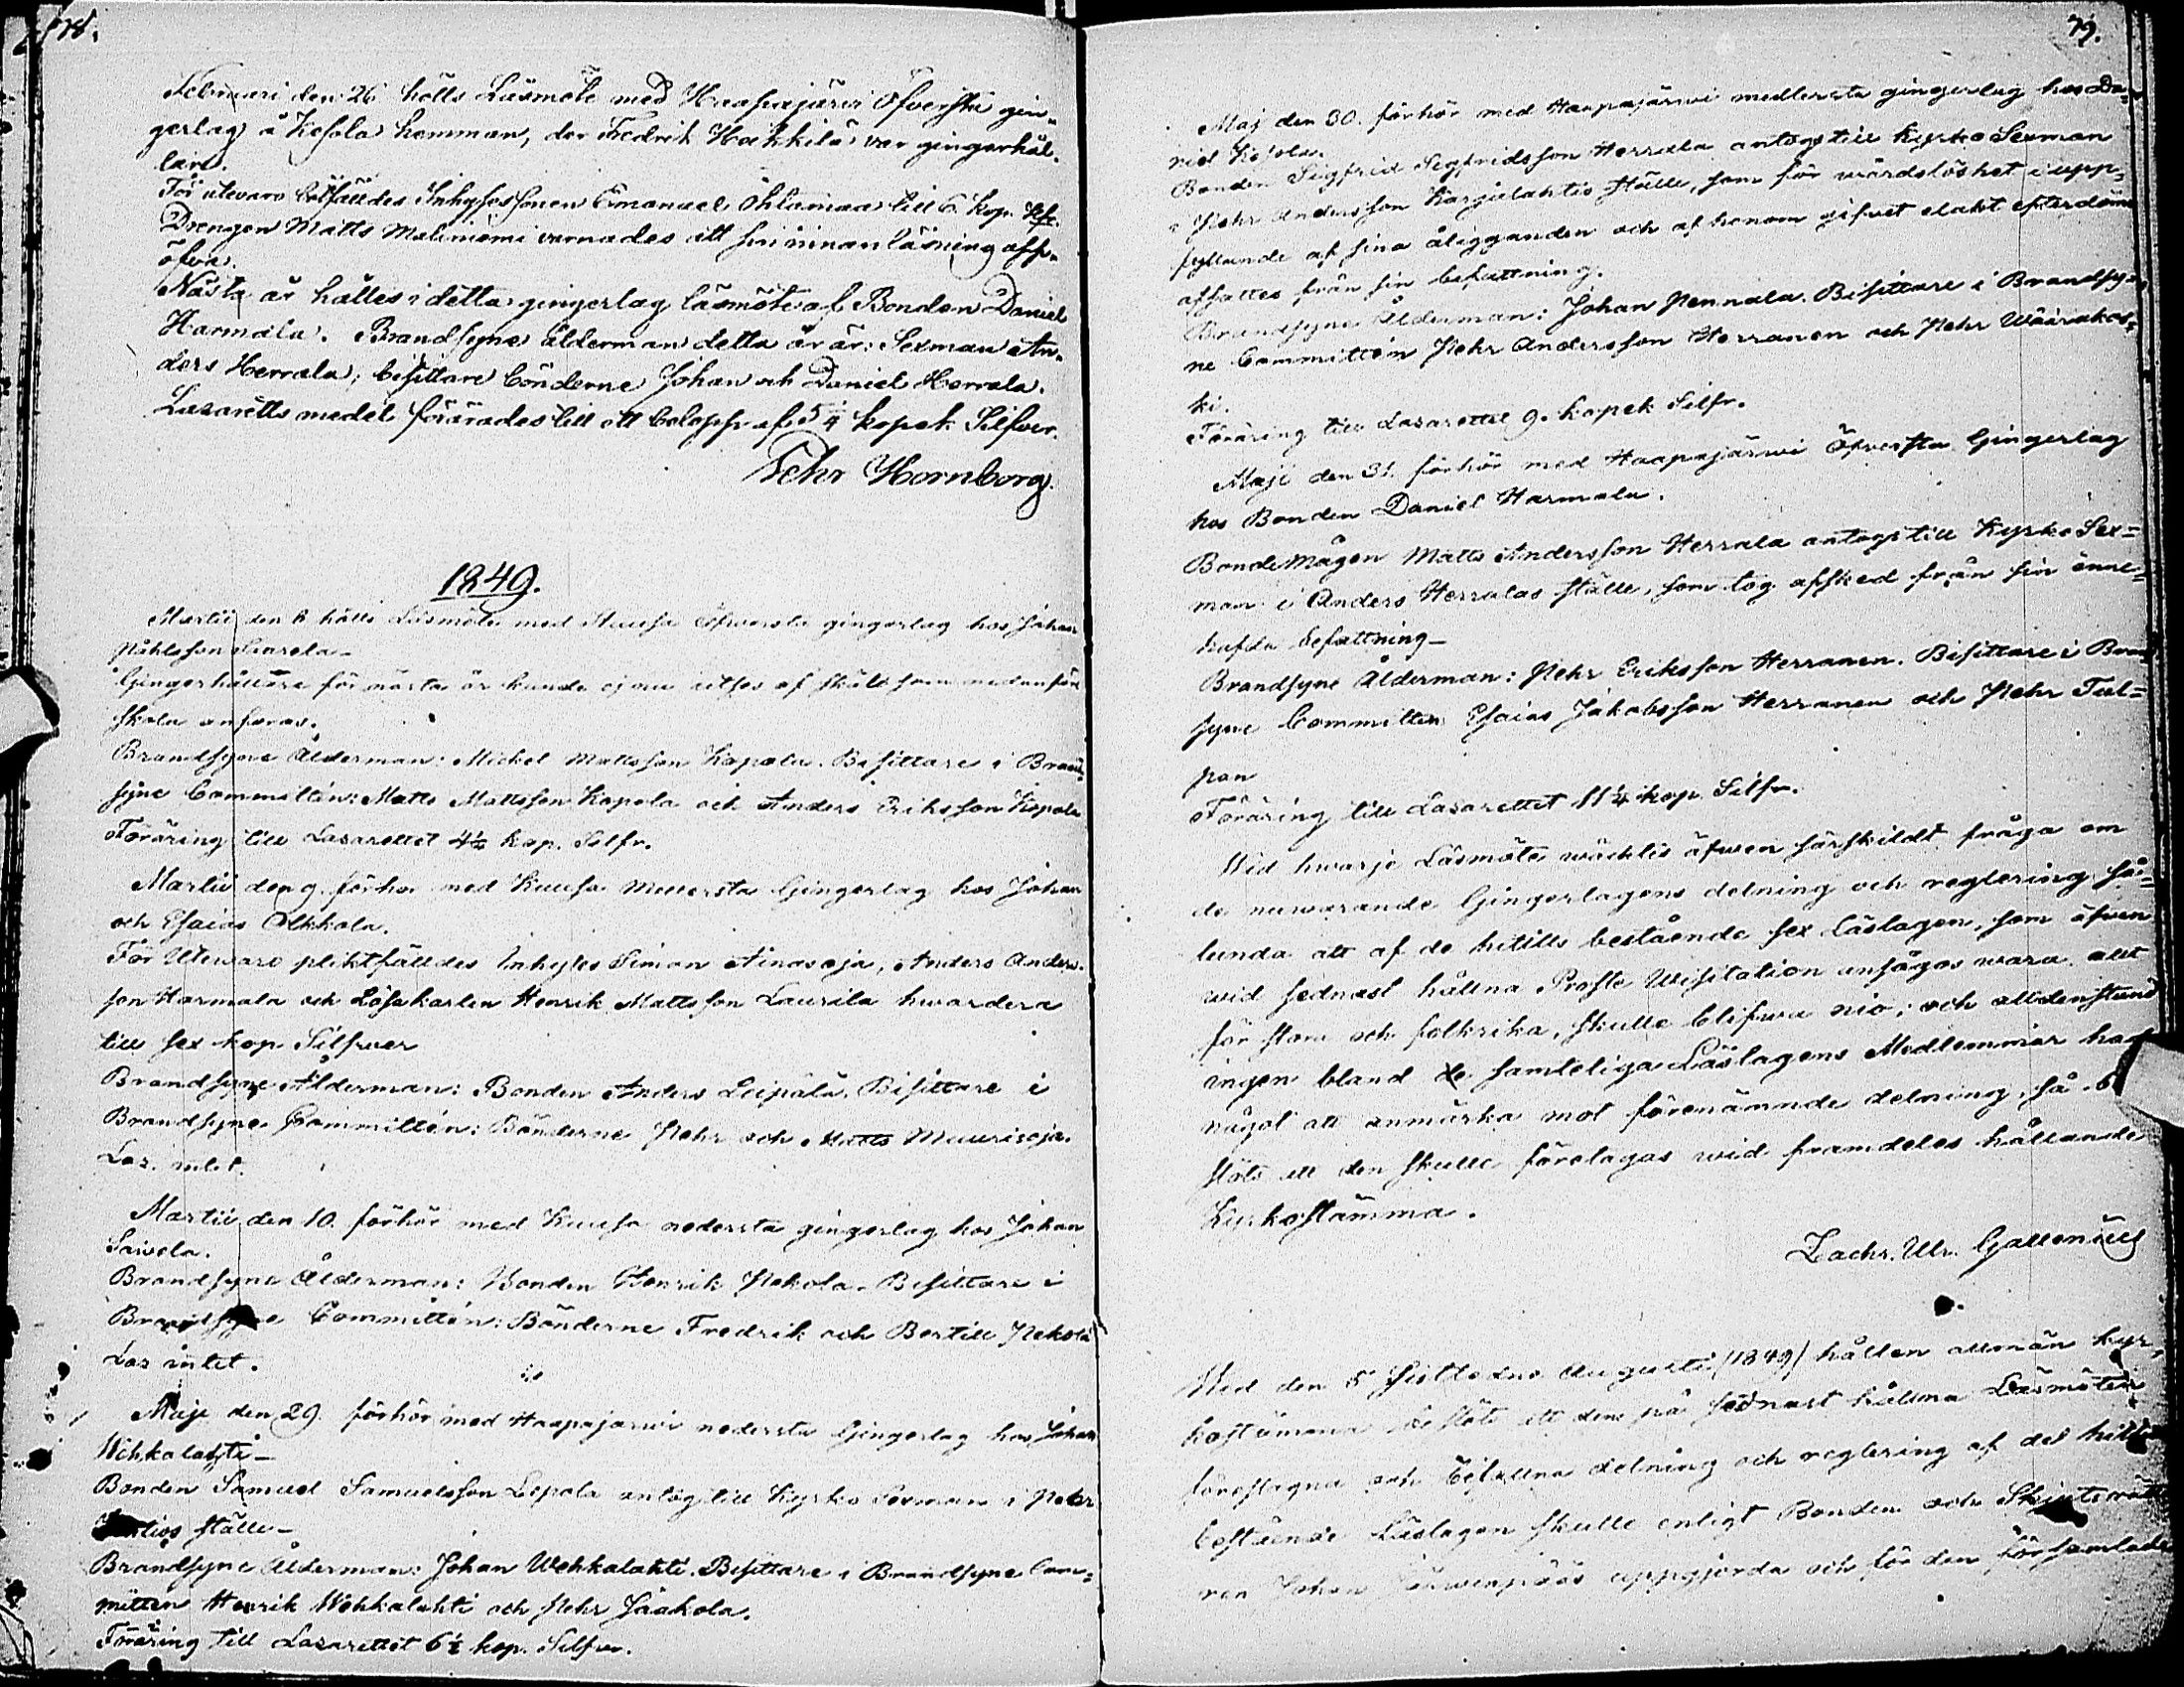 78.
Februari den 26 hölls Läsmöte med Haapajärvi öfversta gin-
gerlag å Kesola hemman, der Fredrik Hakkila var gingerhål-
lare.
För utevaro bötfälldes Inhysessonen Emanuel Öhlamaa till 6. kop. Sfr.
Drengen Matts Maliniemi varnades att sin innanläsning upp-
öfva.
Nästa år hålles i detta gingerlag läsmöte af Bonden Daniel
Harmala. Brandsyns ålderman detta år är: Sexman An-
ders Herrala; bisittare bönderne Johan och Daniel Herrala.
Lasaretts medel förärades till ett belopp af 5¼ kopek Silfver.
Pehr Hornborg.
1849.
Martii den 8 hölls Läsmöte med Kuusa öfversta gingerlag hos Johan
Påhlsson
Gingerhållare för nästa år kunde ej nu utses af skäl som nedanföre
skola anföras.
Brandsyne Ålderman: Mickel Mattsson Kapala. Bisittare i Brand-
syne Committén: Matts Mattsson Kopola och Anders Eriksson Kopola
Föräring till Lasarettet 4½ kop. Silfr.
Martii den 9. förhör med Kuusa mellersta Gingerlag hos Johan
och Esaias Olkkola.
För Utewaro pliktfälldes Inhyses Simon Ainasoja, Anders Anders-
son Harmala och Lösekarlen Henrik Mattsson Laurila hwardera
till sex kop. Silfwer
Brandsyne Ålderman: Bonden Anders Leipälä. Bisittare i
Brandsyne Committén: Bönderne Pehr och Matts Muurisoja.
Las. intet.
Martii den 10. förhör med Kuusa nedersta gingerlag hos Johan
Saivola.
Brandsyne Ålderman: Bonden Henrik Pekola. Bisittare i
Brandsyne Committén: Bönderne Fredrik och Bertill Pekola
Las intet.
Maji den 29. förhör med Haapajärwi nedersta Gingerlag hos Johan
Wehkalahti
Bonden Samuel Samuelsson Lepola antogs till Kyrko Sexman i Pehr
ställe
Brandsyne Ålderman: Johan Wehkalahti. Bisittare i Brandsyne Com-
mitten Henrik Wehkalahti och Pehr Jaakola.
Föräring till Lasarettet 6½ kop. Silfwer.
79.
Maj den 30. förhör med Haapajärwi medlersta gingerlag hos Da-
vid Kesola.
Bonden Sigfrid Segfridsson Herrala antogs till Kyrko Sexman
i Pehr Andersson Karjalahtis ställe, som för wårdslöshet i upp-
fyllande af sina åligganden och af honom gifvet elakt efterdöme
afsattes från sin befattning.
Brandsyne Ålderman: Johan Pennala. Bisittare i Brandsy-
ne Committén Pehr Andersson Herranen och Pehr Wäärakos-
ki.
Föräring till Lasarettet 9. kopek Silfr.
Maji den 31. förhör med Haapajärwi Öfversta Gingerlag
hos Bonden Daniel Harmala.
Bonde Mågen Matts Andersson Herrala antogs till Kyrko Sex=
man i Anders Herralas ställe, som tog afsked från sin inne-
hafda befattning
Brandsyne Ålderman: Pehr Eriksson Herranen. Bisittare i Brand
syne Committen Esaias Jakobsson Herranen och Pehr Tul=
pan
Föräring till Lasarettet 11¼ kop. Silfr.
Wid hwarje Läsmöte wäcktes äfwen särskildt fråga om
de nuwarande Gingerlagens delning och reglering så-
lunda att af de hitills bestående sex Läslagen, som äfwen
wid sednast hållna Prosts Wisitation ansågos wara allt
för stora och folkrika, skulle blifwa nio; och alldenstund
ingen bland de samteliga Läslagens Medlemmar had
något att anmärka mot förenämnde delning, så be
slöts att den skulle företagas wid framdeles hållande
Kyrkostämma.
Zachr. Ulr. Gallenius
Wid den 5 sistledne Augusti (1849) hållen allmän kyr-
kostämma beslöts att den på sednast hållna Läsmöten
föreslagna och delning och reglering af det hittills
bestående Läslagen skulle enligt Bonden och
ren Johan Järwenpääs uppgjorda och för den församlade